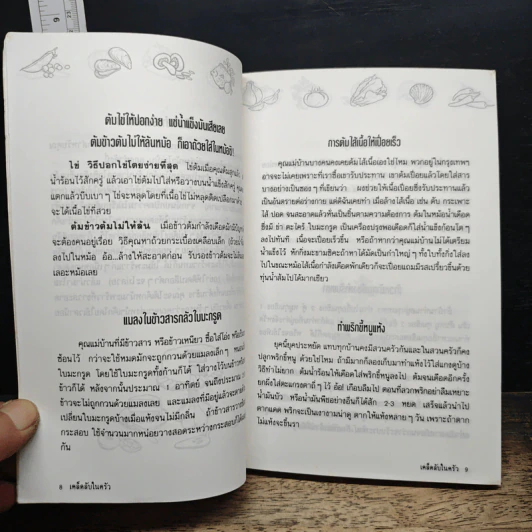 ต้มไข่ให้ปอกง่าย แช่น้ำแข็งมันเสียเลย
ต้มข้าวต้มไม่ให้ล้นหม้อ ก็เอาถ้วยใส่ในหม้อซิ
ไข่ วิธีปอกไข่โดยง่ายที่สุด
น้ำร้อนไว้สักครู่ แล้วเอาไข่ต้มไปใส่หรือวางบนน้ำแข็งสักครู่
แตกแล้วบีบเบา ๆ ไข่จะหลุดโดยที่เนื้อไข่ไม่หลุดติดเปลือก
จะได้เนื้อไข่ที่สวย
ต้มข้าวต้มไม่ให้ล้น เมื่อข้าวต้มกำลังเดือดมักมี
จะต้องคนอยู่เรื่อย วิธีคุณหาถ้วยกระเบื้องเคลือบเล็ก
ลงไปในหม้อ อ้อ...ล้างให้สะอาดก่อน รับรองข้าวต้มจะไม่เดือด
เลอะหม้อเลย
แมลงในข้าวสารกลัวใบมะกรูด
คุณแม่บ้านที่มีข้าวสาร หรือข้าวเหนียว ซื้อใส่โอ่ง
ซ้อนไว้ กว่าจะใช้หมดมักจะถูกกวนด้วยแมลงเล็ก ๆ
ใบมะกรูด โดยใช้ใบมะกรูดทั้งก้านก็ได้ ใส่วางไว้บนข้าว
ข้าวก็ได้ หลังจากนั้นประมาณ 1 อาทิตย์ จนถึงประมาณ
จะไม่ถูกกวนด้วยแมลงเลย และแมลงที่มีอยู่แล้วจะหาย
เปลี่ยนใบมะกรูดบ้างเมื่อแห้งจนไม่มีกลิ่น ถ้าข้าวสาร
กระสอบ ใช้จำนวนมากหน่อยวางสอดระหว่างกระสอบก็ได้
กัน
8 เคล็ดลับในครัว
การต้มไส้เนื้อให้เปื่อยเร็ว
คุณแม่บ้านบางคนคงเคยต้มไส้เนื้อเองใช่ไหม พวกอยู่ในกรุงเทพฯ
อาจจะไม่เคยเพราะที่เราซื้อเขารับประทาน เขาต้มเปื่อยแล้วโดยใส่สาร
บางอย่างเป็นของ ๆ ที่เรียนว่า ผงช่วยให้เนื้อเปื่อยซึ่งรับประทานแล้วจะ
เป็นอันตรายต่อร่างกาย แต่ดิฉันเคยทำ เมื่อล้างไส้เนื้อ เช่น ตับ กระเพาะ
ไส้ ปอด จนสะอาดแล้วหั่นเป็นชิ้นตามความต้องการ ต้มในหม้อน้ำเดือด
ซึ่งมี ข่า ตะไคร้ ใบมะกรูด เป็นเครื่องปรุงพอเดือดก็ใส่น้ำแข็งก้อนโต ๆ
ลงไปทันที เนื้อจะเปื่อยเร็วขึ้น หรือถ้าหากว่าคุณแม่บ้านไม่ได้เตรียม
น้ำแข็งไว้ หักกิ่งมะขามซิคะถ้าหาได้มัดเป็นกำใหญ่ ๆ ทั้งใบทั้งกิ่งใส่ลง
ไปในขณะหม้อไส้เนื้อกำลังเดือดพักเดียวก็จะเปื่อยแถมมีรสเปรี้ยวขึ้นด้วย
ทุ่นน้ำส้มไปได้มาก
ทำพริกขี้หนูแห้ง
ยุคนี้ยุคประหยัด แทบทุกบ้านคงมีสวนครัวกันและในสวนครัวก็คง
ปลูกพริกขี้หนู ด้วยใช่ไหม ถ้ามีมากก็ลองเก็บมาทำแห้งไว้ใส่แกงดูบ้าง
วิธีทำไม่ยาก ต้มน้ำร้อนให้เดือดใส่พริกขี้หนูลงไป ต้มจนเดือดอีกครั้ง
ยกมีดใส่ตะแกรงตาถี่ ๆ ไว้ อ้อ! เกือบลืมไป ตอนที่ลวกพริกอย่าลืมเหยาะ
น้ำมันบัว หรือน้ำมันพืชอย่างอื่นก็ได้สัก 2-3 หยด เสร็จแล้วนำไป
ตากแดด พริกจะเป็นเงางามน่าดู ตากให้แห้งหลาย ๆ วัน เพราะถ้าตาก
ไม่แห้งจะขึ้นรา
เคล็ดลับในครัว 9